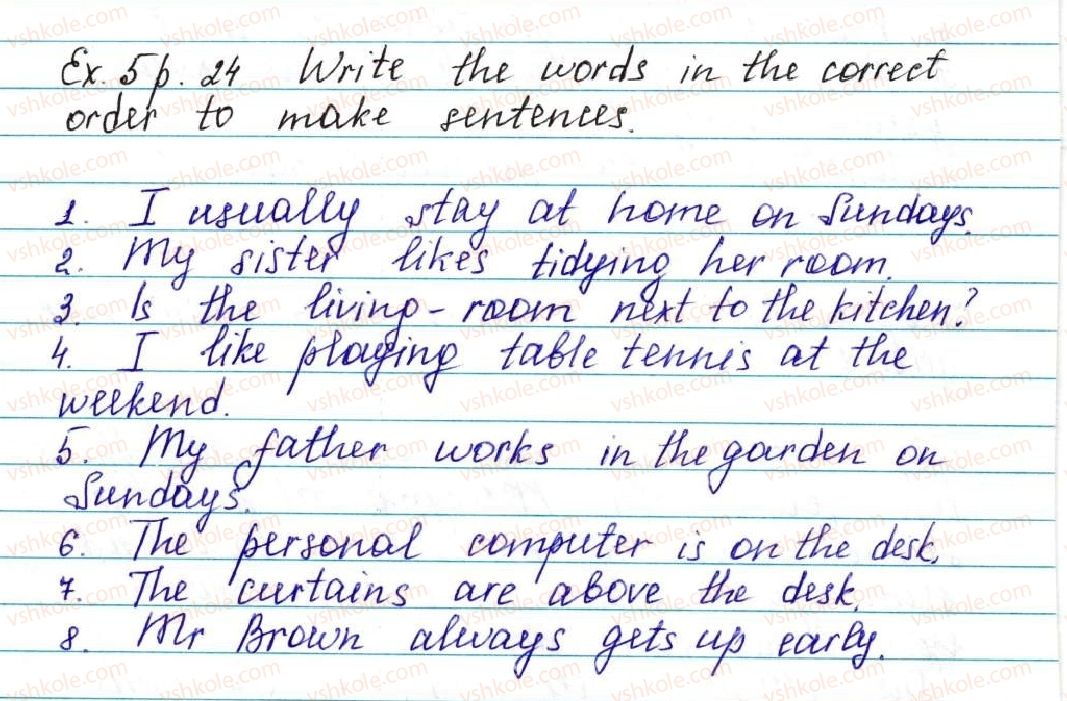 Ex. 5 p. 24 Write the words in the correct
order to make sentences.
1. I usually stay at home on Sundays.
2. My sister likes tidying her room.
3. Is the living-room next to the kitchen?
4. I like playing table tennis at the
weekend.
5. My father works in the garden on
Sundays.
6. The personal computer is on the desk.
7. The curtains are above the desk.
8. Mr Brown always gets up early.
vshkole.com